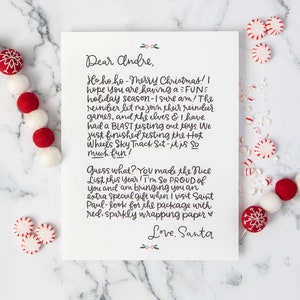 Dear Andre,
Ho ho ho - Merry Christmas! I
hope you are having a : FUN :
holiday season - I sure am! The
reindeer let me join their reindeer
games, and the elves & I have
had a BLAST testing out toys. We
just finished testing the Hot
Wheels Sky Track Set - it is so
much fun!
Guess what? You made the Nice
List this year! I'm so PROUD of
you and am bringing you an
extra special gift when I visit Saint
Paul - look for the package with
red, sparkly wrapping paper ♥
Love, Santa